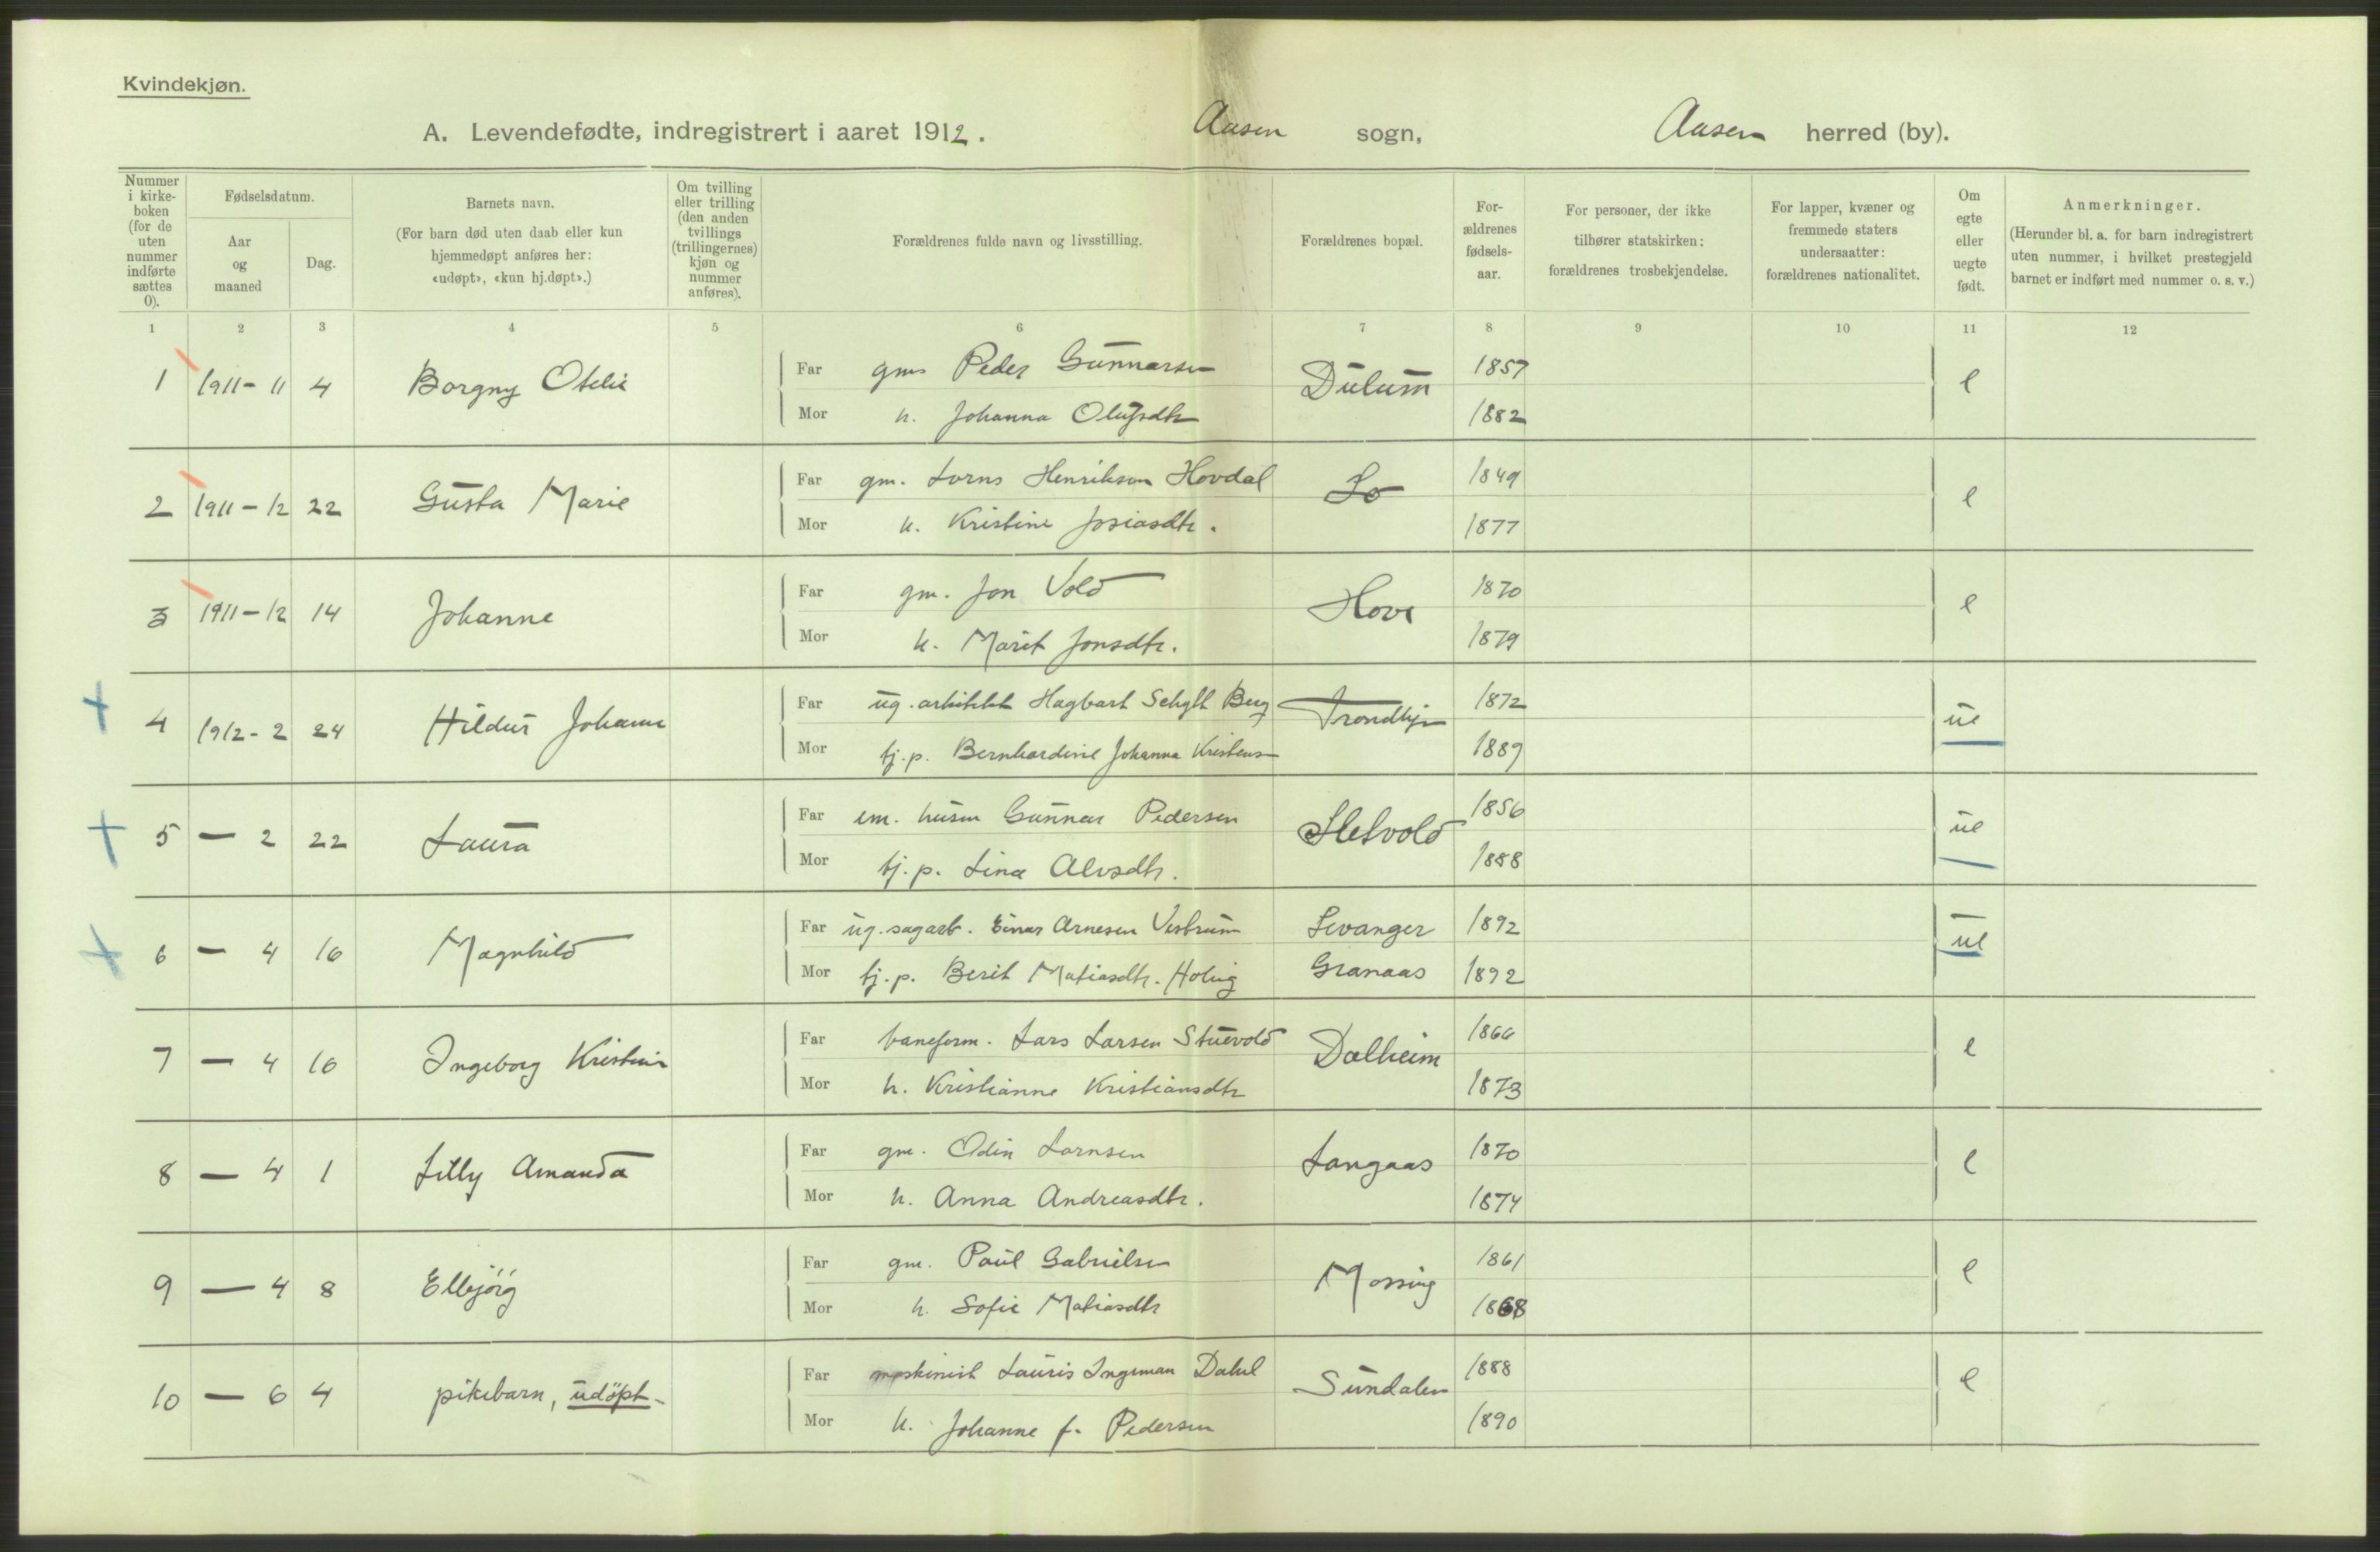 Kvindekjøn.
A. Levendefødte, indregistrert i aaret 1912. Aasen sogn, Aasen herred (by).
Nummer i kirke-boken (for de uten nummer indførte sættes 0).
Fødselsdatum.
Aar og maaned
Dag.
Barnets navn.
(For barn død uten daab eller kun hjemmedøpt anføres her: «udøpt», «kun hj.døpt».)
Om tvilling eller trilling (den anden tvillings (trillingernes) kjøn og nummer anføres).
Forældrenes fulde navn og livsstilling.
Forældrenes bopæl.
For-ældrenes fødsels-aar.
For personer, der ikke tilhører statskirken: forældrenes trosbekjendelse.
For lapper, kvæner og fremmede staters undersaatter: forældrenes nationalitet.
Om egte eller uegte født.
Anmerkninger.
(Herunder bl. a. for barn indregistrert uten nummer, i hvilket prestegjeld barnet er indført med nummer o. s. v.)
1 2 3 4 5 6 7 8 9 10 11 12
1 1911-11 4 Borgny Otelie Far gm. Peder Gunnarsen Dulum 1857 e
Mor h. Johanna Olufsdtr 1882
2 1911-12 22 Gusta Marie Far gm. Lorns Henriksen Hovdal Lo 1849 e
Mor h. Kristine Josiasdtr. 1877
3 1911-12 14 Johanne Far gm. Jon Vold Hove 1870 e
Mor h. Marit Jonsdtr. 1879
4 1912-2 24 Hildur Johanne Far ug. arkitekt Hagbart Berg Trondhjem 1872 ue
Mor tj.p. Bernhardine Johanna Kristensen 1889
5 — 2 22 Laura Far em. husm Gunnar Pedersen Sletvold 1856 ue
Mor tj.p. Lina Alvsdtr. 1888
6 — 4 16 Magnhild Far ug. sagarb. Einar Arnesen Vestrum Levanger 1892 ue
Mor tj.p. Berit Matiasdtr. Granaas 1892
7 — 4 16 Ingeborg Kristine Far baneform. Lars Larsen Stuevold Dalheim 1866 e
Mor h. Kristianne Kristiansdtr 1873
8 — 4 1 Lilly Amanda Far gm. Odin Lornsen Langaas 1870 e
Mor h. Anna Andreasdtr. 1874
9 — 4 8 Ellbjörg Far gm. Paul Gabrielsen Mossing 1861 e
Mor h. Sofie Matiasdtr 1868
10 — 6 4 pikebarn, udöpt. Far maskinist Lauris Ingeman Dahl Sundalen 1888 e
Mor h. Johanne f. Pedersen 1890